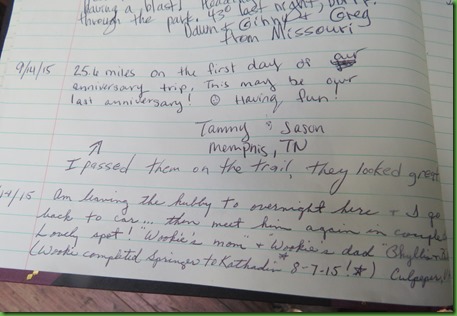 Having a blast!
through the park. 43° last night, brrr.
Dawn & Ginny & Greg
from Missouri
9/14/15 25.6 miles on the first day of our
anniversary trip. This may be our
last anniversary! ☺ Having fun!
Tammy & Jason
Memphis, TN
I passed them on the trail, they looked great
14/15 Am leaving the hubby to overnight here & I go
back to car... then meet him again in couple
Lovely spot! "Wookie's mom" & Wookie's dad
(Wookie completed Springer to Kathadin 8-7-15! ☆) Culpeper,